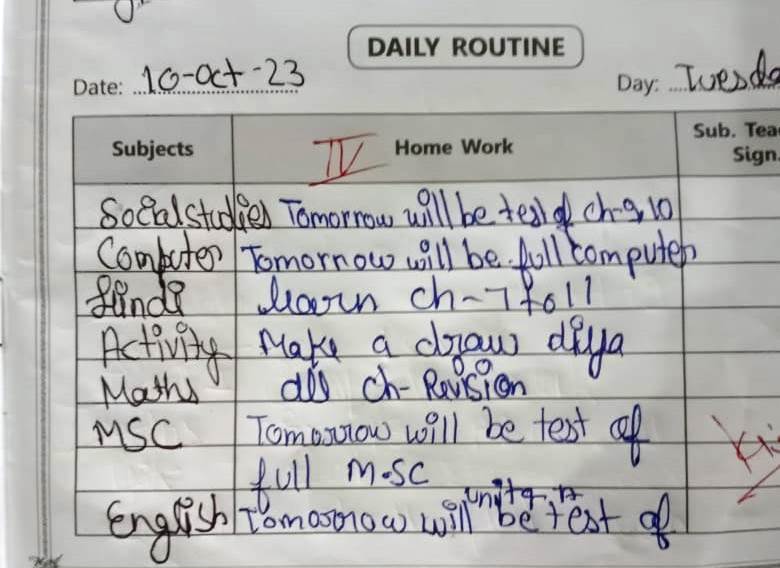 DAILY ROUTINE
Date: 10-Oct-23 Day: Tuesda
Subjects IV Home Work Sub. Tea
Sign.
Social studies Tomorrow will be test of ch-9,10
Computer Tomorrow will be full computer
Hindi learn ch-7 to 11
Activity Make a draw diya
Maths all ch- Revision
MSC Tomorrow will be test of
full M.SC
English Tomorrow will be test of